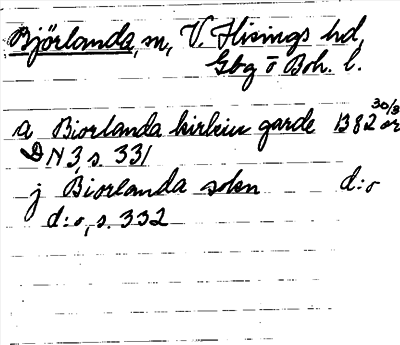 Björlanda, sn, V. Hisings hd,
Gbg o Boh. l.
a Biorlanda kirkiu garde 1382 30/3 or
DN 3, s. 331
j Biorlanda sokn d:o
d:o, s. 332